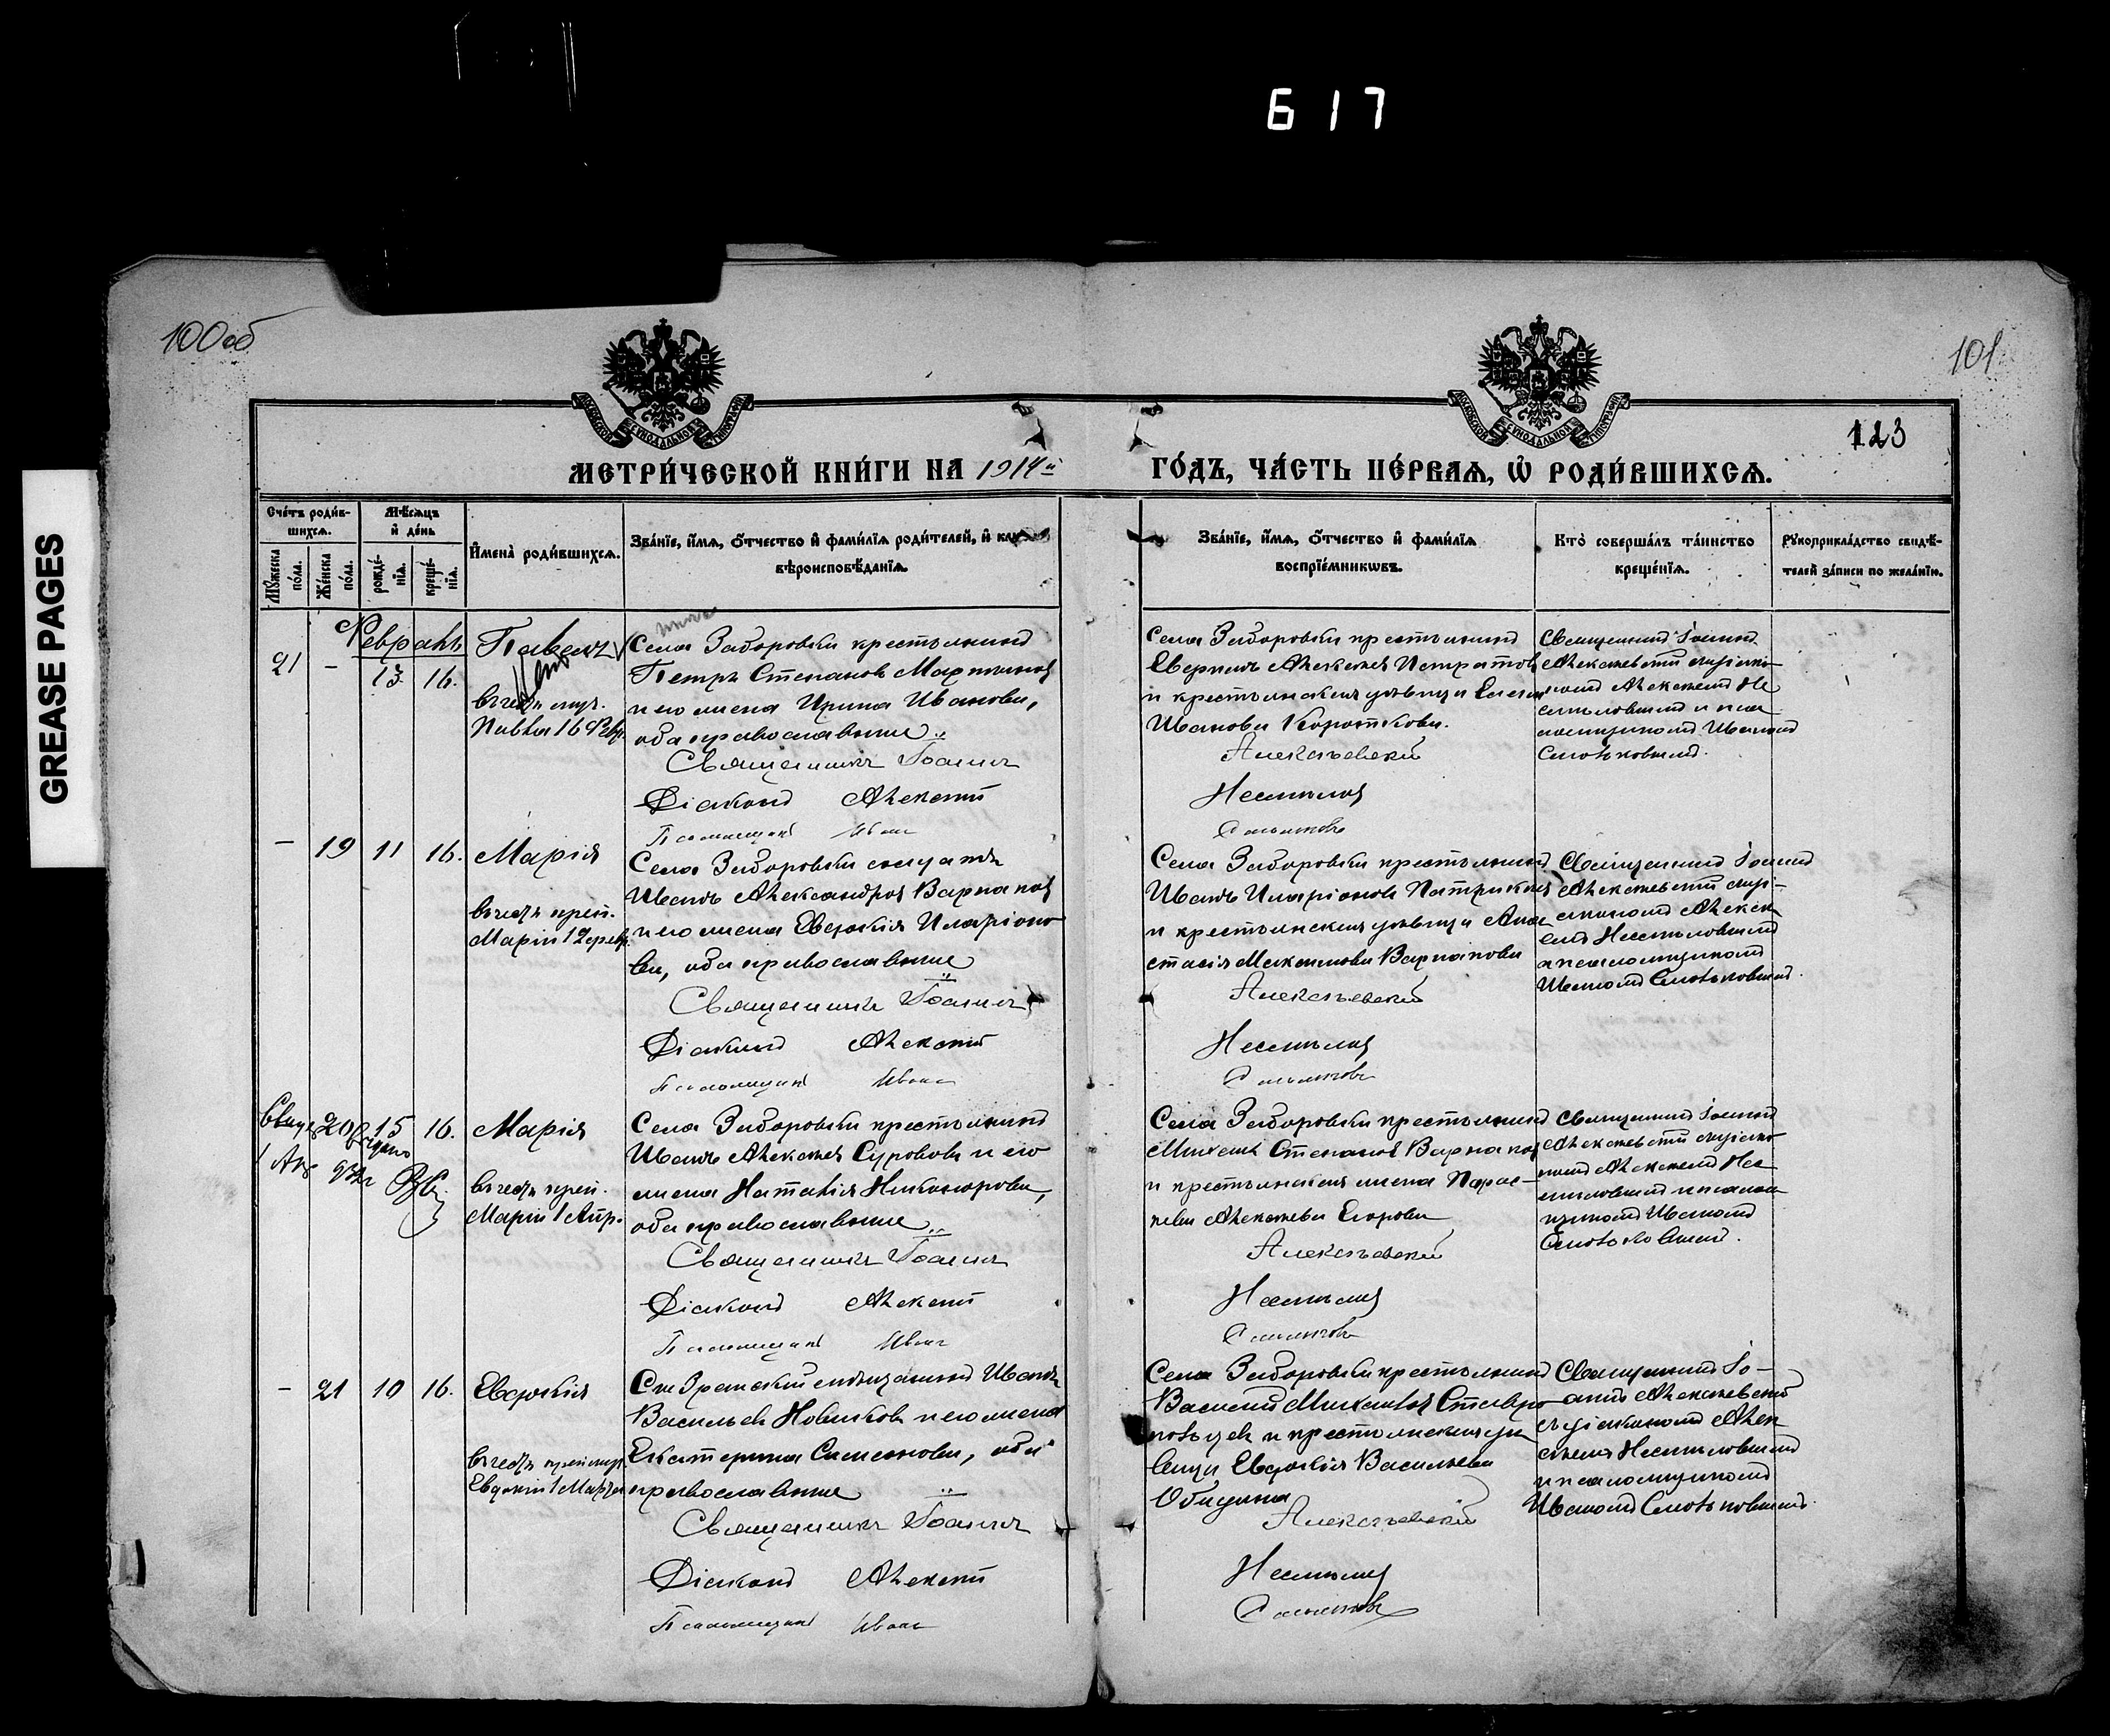 617
GREASE PAGES
100об
101
123
МЕТРИ́ЧЕСКОЙ КНИ́ГИ НА 1914й
ГО́ДЪ, ЧА́СТЬ ПЕ́РВАѦ, Ѡ҆ РОДИ́ВШИХСѦ.
Сче́тъ роди́в-
шихсѧ.
Мѣ́сѧцъ
и҆ де́нь
Мꙋ́жеска
по́ла.
Же́нска
по́ла.
рожде́-
нїѧ.
креще́-
нїѧ.
И҆мена̀ роди́вшихсѧ.
Зва́нїе, и҆́мѧ, ѻ҆́тчество и҆ фами́лїѧ роди́телей, и҆
вѣроисповѣ́данїѧ.
Зва́нїе, и҆́мѧ, ѻ҆́тчество и҆ фами́лїѧ
воспрїе́мникѡвъ.
Кто̀ соверша́лъ та́инство
креще́нїѧ.
Рꙋкоприкла́дство свидѣ́-
телей за́писи по жела́нїю.
Февраль
21 - 13. 16.
Павелъ
въ честь муч.
Павла 16 Февр.
Села Заборовки крестьянинъ
Петръ Степановъ Мартыновъ
и его жена Ирина Иванова,
оба православные
Священникъ Іоаннъ
Діаконъ Алексѣй
Псаломщикъ Иванъ
Села Заборовки крестьянинъ
Алексѣевъ
и крестьянская дѣвица Елена
Иванова Короткова.
Алексѣевскій
Несмѣловъ
Священникъ Іоаннъ
Алексѣевскій съ діако-
номъ Алексѣемъ Не
смѣловымъ и пса
ломщикомъ Иваномъ
- 19 11 16.
Марія
въ честь преп.
Маріи 12 февр.
Села Заборовки
Иванъ Александровъ Варнаковъ
и его жена Евдокія Иларіоно
ва, оба православные
Священникъ Іоаннъ
Діаконъ Алексѣй
Псаломщикъ Иванъ
Села Заборовки крестьянинъ
Иванъ Иларіоновъ Патрикѣевъ
и крестьянская дѣвица Ана
стасія Максимова Варнакова
Алексѣевскій
Несмѣловъ
Священникъ Іоаннъ
Алексѣевскій съ ді-
акономъ Алексѣ
емъ Несмѣловымъ
и псаломщикомъ
Иваномъ
20 15 16.
Марія
въ честь преп.
Маріи 1 Апр.
Села Заборовки крестьянинъ
Иванъ Алексѣевъ Сурововъ и его
жена Наталія Никонорова,
оба православные
Священникъ Іоаннъ
Діаконъ Алексѣй
Псаломщикъ Иванъ
Села Заборовки крестьянинъ
Михаилъ Степановъ Варнаковъ
и крестьянская жена Парас-
кева Алексѣева Егорова
Алексѣевскій
Несмѣловъ
Священникъ Іоаннъ
Алексѣевскій съ діако
номъ Алексѣемъ Нес
мѣловымъ и псалом
щикомъ Иваномъ
- 21 10 16.
Евдокія
въ честь преп. муч.
Евдокіи 1 Марта
Сызранскій мѣщанинъ Иванъ
Васильевъ Новиковъ и его жена
Екатерина Симеонова, оба
православные
Священникъ Іоаннъ
Діаконъ Алексѣй
Псаломщикъ Иванъ
Села Заборовки крестьянинъ
Василій Михаиловъ
и крестьянская дѣ
вица Евдокія Васильева
Алексѣевскій
Несмѣловъ
Священникъ Іо-
аннъ Алексѣевскій
съ діакономъ Алек
сѣемъ Несмѣловымъ
и псаломщикомъ
Иваномъ